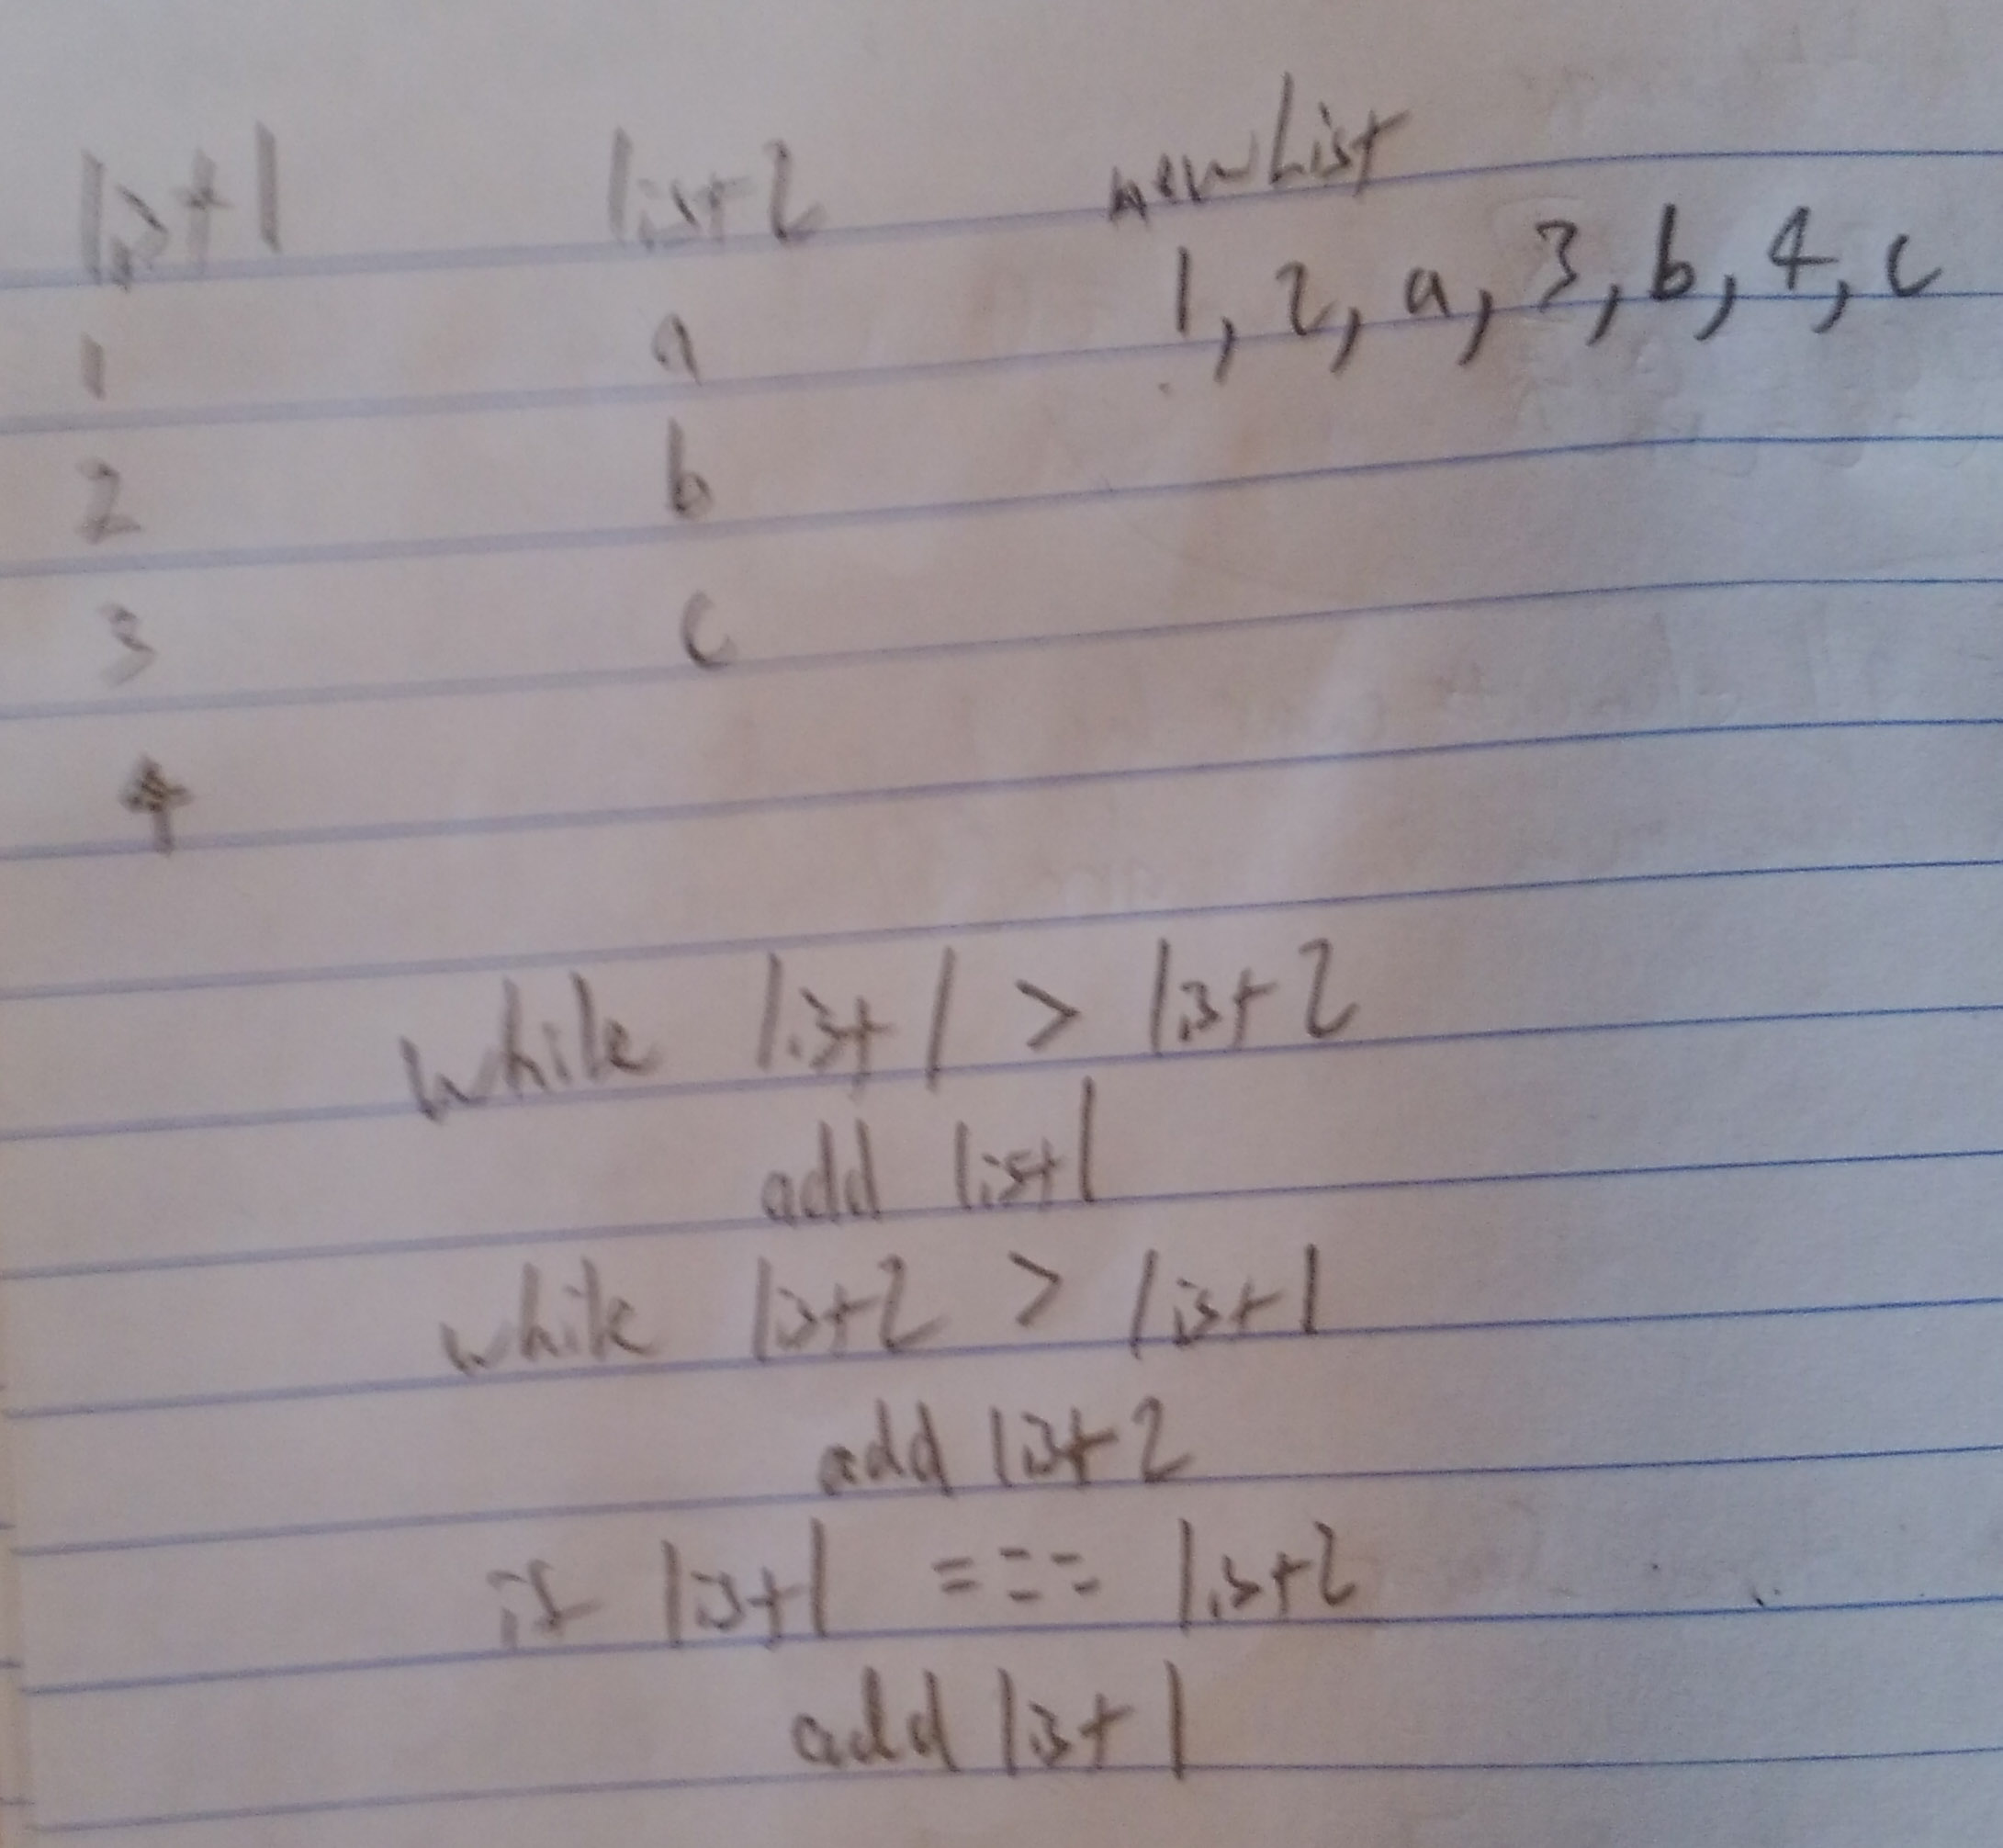 list1 list2 newList
1 a 1, 2, a, 3, b, 4, c
2 b
3 c
4
while list1 > list2
add list1
while list2 > list1
add list2
if list1 === list2
add list1